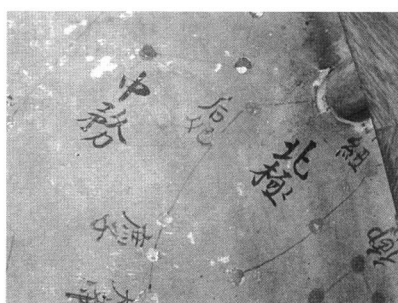 中務
后妃
北極
紐
庶子